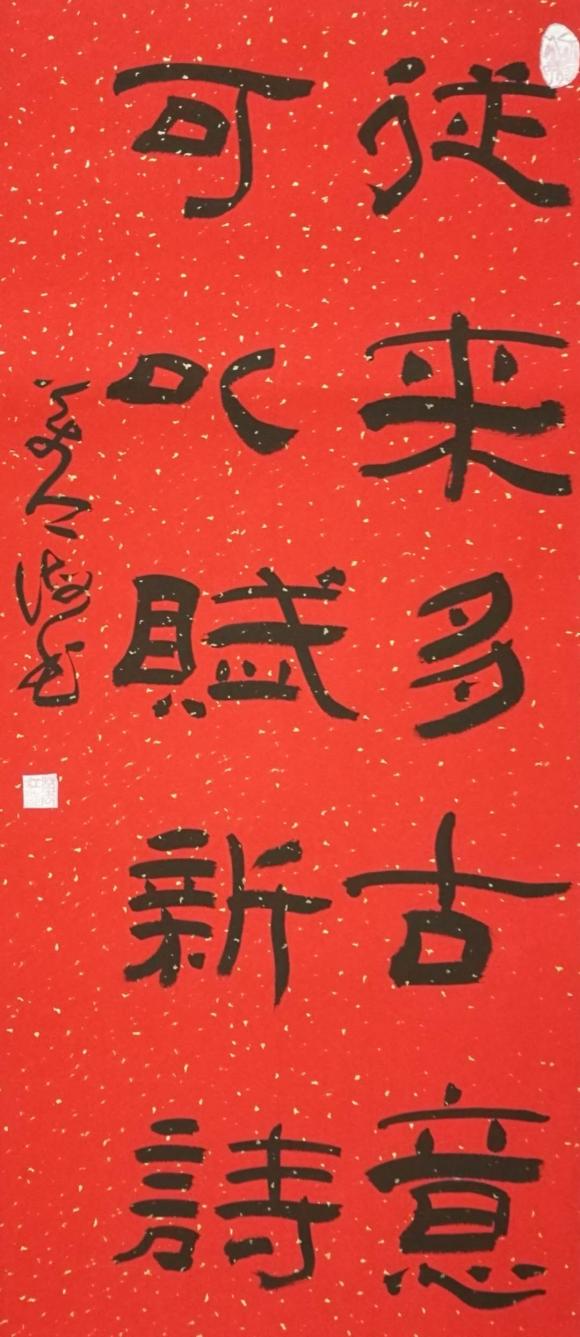 從来多古意
可以賦新詩